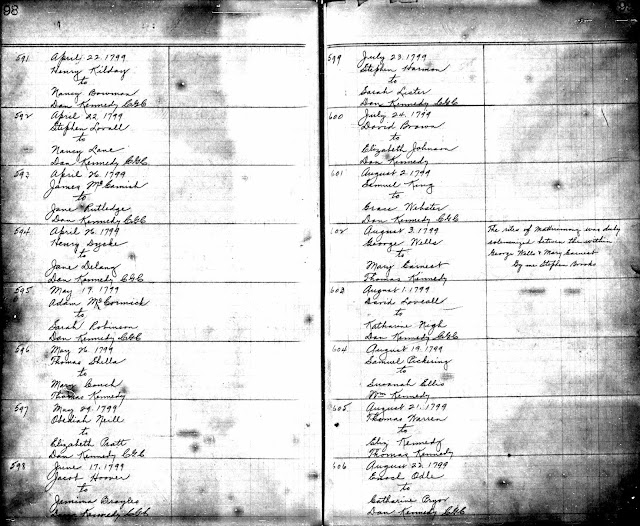 98
591 April 22, 1799
Henry Kilday
to
Nancy Bowman
Dan Kennedy C&C
592 April 22, 1799
Stephen Lovall
to
Nancy Lane
Dan Kennedy C&C
593 April 26, 1799
James McCamish
to
Jane Rutledge
Dan Kennedy C&C
594 April 26, 1799
Henry
to
Jane Delany
Dan Kennedy C&C
595 May 19, 1799
Adam McCormick
to
Sarah Robinson
Dan Kennedy C&C
596 May 26, 1799
Thomas
to
Mary Couch
Thomas Kennedy
597 May 29, 1799
Obediah Neill
to
Elizabeth Pratt
Dan Kennedy C&C
598 June 17, 1799
Jacob Hoover
to
Jemima Broyles
Dan Kennedy C&C
599 July 23, 1799
Stephen Harmon
to
Sarah Lister
Dan Kennedy C&C
600 July 24, 1799
David Brown
to
Elizabeth Johnson
Dan Kennedy
601 August 2, 1799
Samuel King
to
Grace Webster
Dan Kennedy C&C
102 August 3, 1799
George Wells
to
Mary Earnest
Thomas Kennedy
The rites of Mathrimony was duly
solemnized between the within
George Wells & Mary Earnest
By me Stephen Brooks
603 August 1, 1799
David Loveall
to
Katharine Nigh
Dan Kennedy C&C
604 August 19, 1799
Samuel Pickering
to
Susanah Ellis
Wm Kennedy
605 August 21, 1799
Thomas Warren
to
Eliz Kennedy
Thomas Kennedy
606 August 22, 1799
Enoch Odle
to
Catharine Pryor
Dan Kennedy C&C